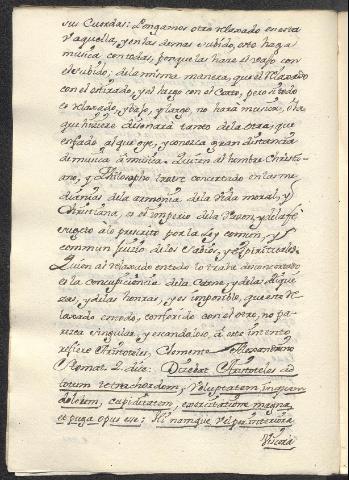 sus Cuerdas: Pongamos otro relaxado en esta
y aquella, y en las demas subido, este haga
musica con todas, porque las hace el baxo con
el subido; de la misma manera, que el relaxado
con el estirado, y el largo con el Corto, pero si todo
es relaxado, y baxo, y largo, no hará musica, o la
que hiciere disonará tanto de la otra, que
enfade al que oye, y conozca gran distancia
de musica à musica. Quien al hombre Christi-
ano, y Philosopho trahe concertado en las me-
dianias de la armonia de la Vida moral, y
Christiana, es el imperio de la razon, y de la fé
sugeto à lo prescrito por la Ley comun, y
commun juizio de los Sabios, y espirituales.
Quien al relaxado en todo lo trahe desconcertado
es la concupisciencia de la Carne, y de las rique
zas, y de las honras, y es imposible, que este re
laxado en todo, conferido con el otro, no pa-
rezca singular, y escandaloso, á este intento
refiere Aristoteles, Clemente Alexandrino
Stromat. 2. dice: Dicebat Aristoteles ad
totum tetrachordum; Voluptatem inquam
dolorem, cupiditatem, exercitatione magna,
et pugna opus esse; Hi namque vel per interiora
Viscera